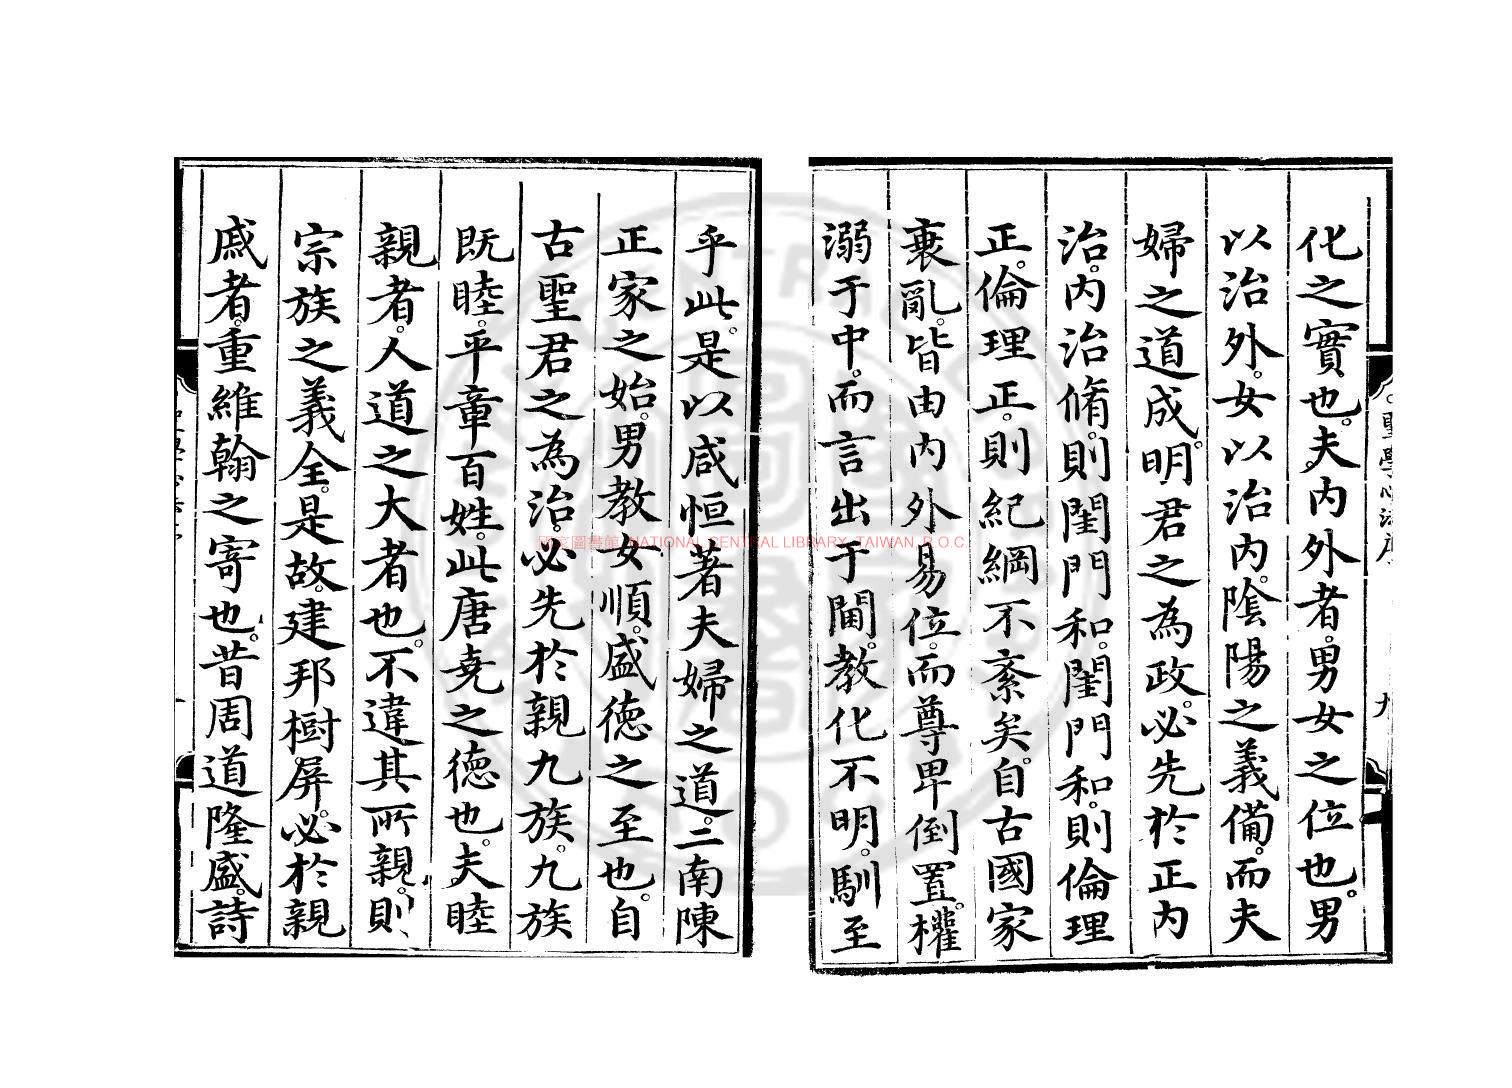 化之實也夫内外者男女之位也男
以治外女以治内陰陽之義備而夫
婦之道成明君之為政必先於正内
治内治脩則閨門和閨門和則倫理
正倫理正則紀綱不紊矣自古國家
衰亂皆由内外易位而尊卑倒置權
溺于中而言出于閫教化不明馴至
乎此是以咸恒著夫婦之道二南陳
正家之始男教女順盛徳之至也自
古聖君之為治必先於親九族九族
既睦平章百姓此唐堯之徳也夫睦
親者人道之大者也不違其所親則
宗族之義全是故建邦樹屏必於親
戚者重維翰之寄也昔周道隆盛詩
聖學心法序
九
國家圖書館 NATIONAL CENTRAL LIBRARY, TAIWAN, R.O.C.